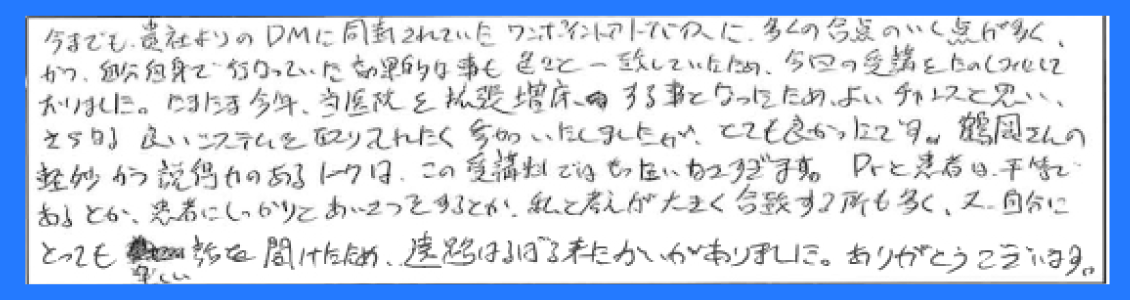 今までも、貴社よりのDMに同封されていたワンポイントアドバイスに、多くの合点のいく点が多く、
かつ、自分自身で行なっていた効果的な事も色々と一致していたため、今回の受講をたのしみにして
おりました。たまたま今年、当医院を拡張増床する事となったため、よいチャンスと思い、
さらなる良いシステムを取り入れたく参加いたしましたが、とても良かったです。鶴岡さんの
軽妙かつ説得力のあるトークは、この受講料ではもったいなさすぎます。Drと患者は平等で
あるとか、患者にしっかりとあいさつをするとか、私と考えが大きく合致する所も多く、又、自分に
とっても楽しい話を聞けたため、遠路はるばる来たかいがありました。ありがとうございます。